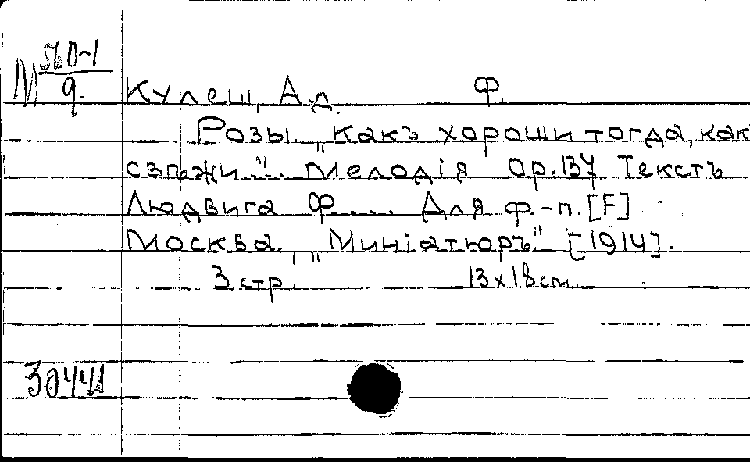 М 560-1
9.
Кулеш, Ад. Ф.
Розы. „Какъ хороши тогда, как
свѣжи". Мелодія Op. 137 Текстъ
Людвига Ф.... Для ф.-п. [F]
Москва, „Миніатюръ" [1914].
3 стр. 13 x 18 см.